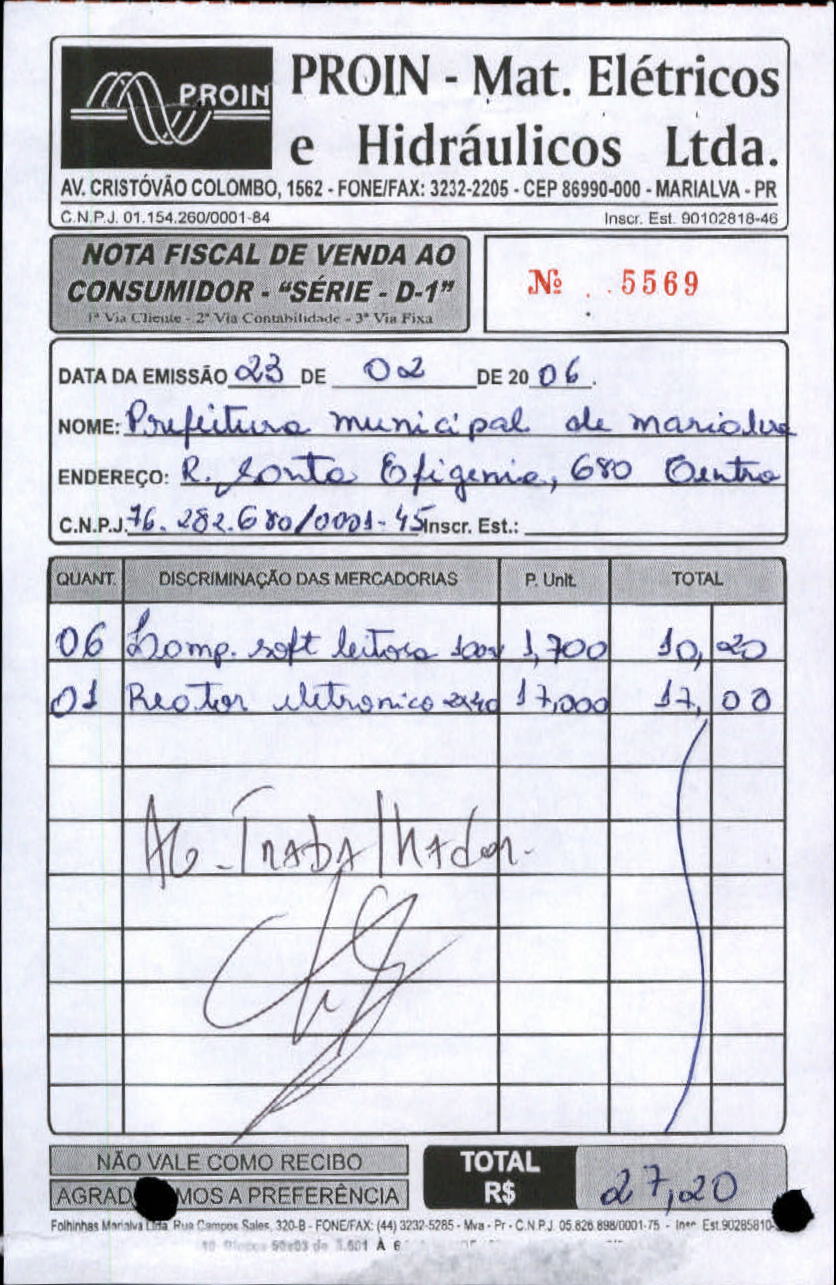 PROIN
PROIN - Mat. Elétricos
e Hidráulicos Ltda.
AV. CRISTÓVÃO COLOMBO, 1562 - FONE/FAX: 3232-2205 - CEP 86990-000 - MARIALVA - PR
C.N.P.J. 01.154.260/0001-84 Inscr. Est. 90102818-46
NOTA FISCAL DE VENDA AO
CONSUMIDOR - "SÉRIE - D-1"
1ª Via Cliente - 2ª Via Contabilidade - 3ª Via Fixa
Nº 5569
DATA DA EMISSÃO 23 DE 02 DE 20 06.
NOME: Prefeitura municipal de marialva
ENDEREÇO: R. Santa Efigenia, 680 Centro
C.N.P.J. 76.282.680/0001-45 Inscr. Est.:
QUANT. DISCRIMINAÇÃO DAS MERCADORIAS P. Unit. TOTAL
06 Lamp. soft leitosa 100w 1,700 10,20
01 Reator eletronico 2x40 17,000 17,00
AG-Trabalhador
NÃO VALE COMO RECIBO
MOS A PREFERÊNCIA
TOTAL
R$ 27,20
Folhinhas Marialva Ltda. Rua Campos Sales, 320-B - FONE/FAX: (44) 3232-5285 - Mva - Pr - C.N.P.J. 05.826.898/0001-75 - Inscr. Est.90285810-
10 Blocos 50x03 de